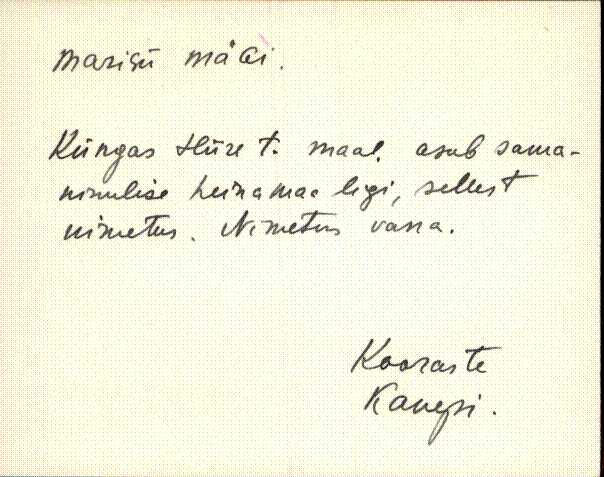 Marisü mägi.
Küngas Hüre t. maal, asub sama-
nimelise heinamaa ligi, sellest
nimetus. Nimetus vana.
Kooraste
Kanepi.